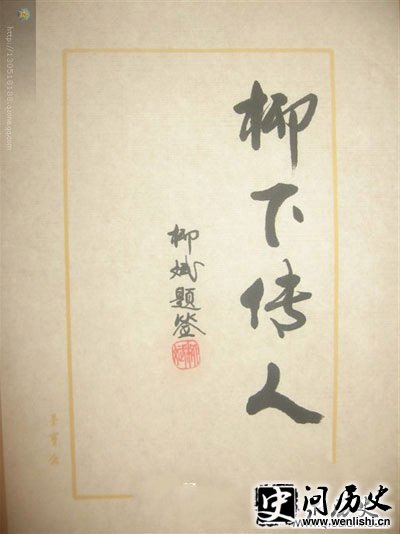 柳下传人
柳斌题签
http://130518188.qzone.qq.com
史问历史
www.wenlishi.cn